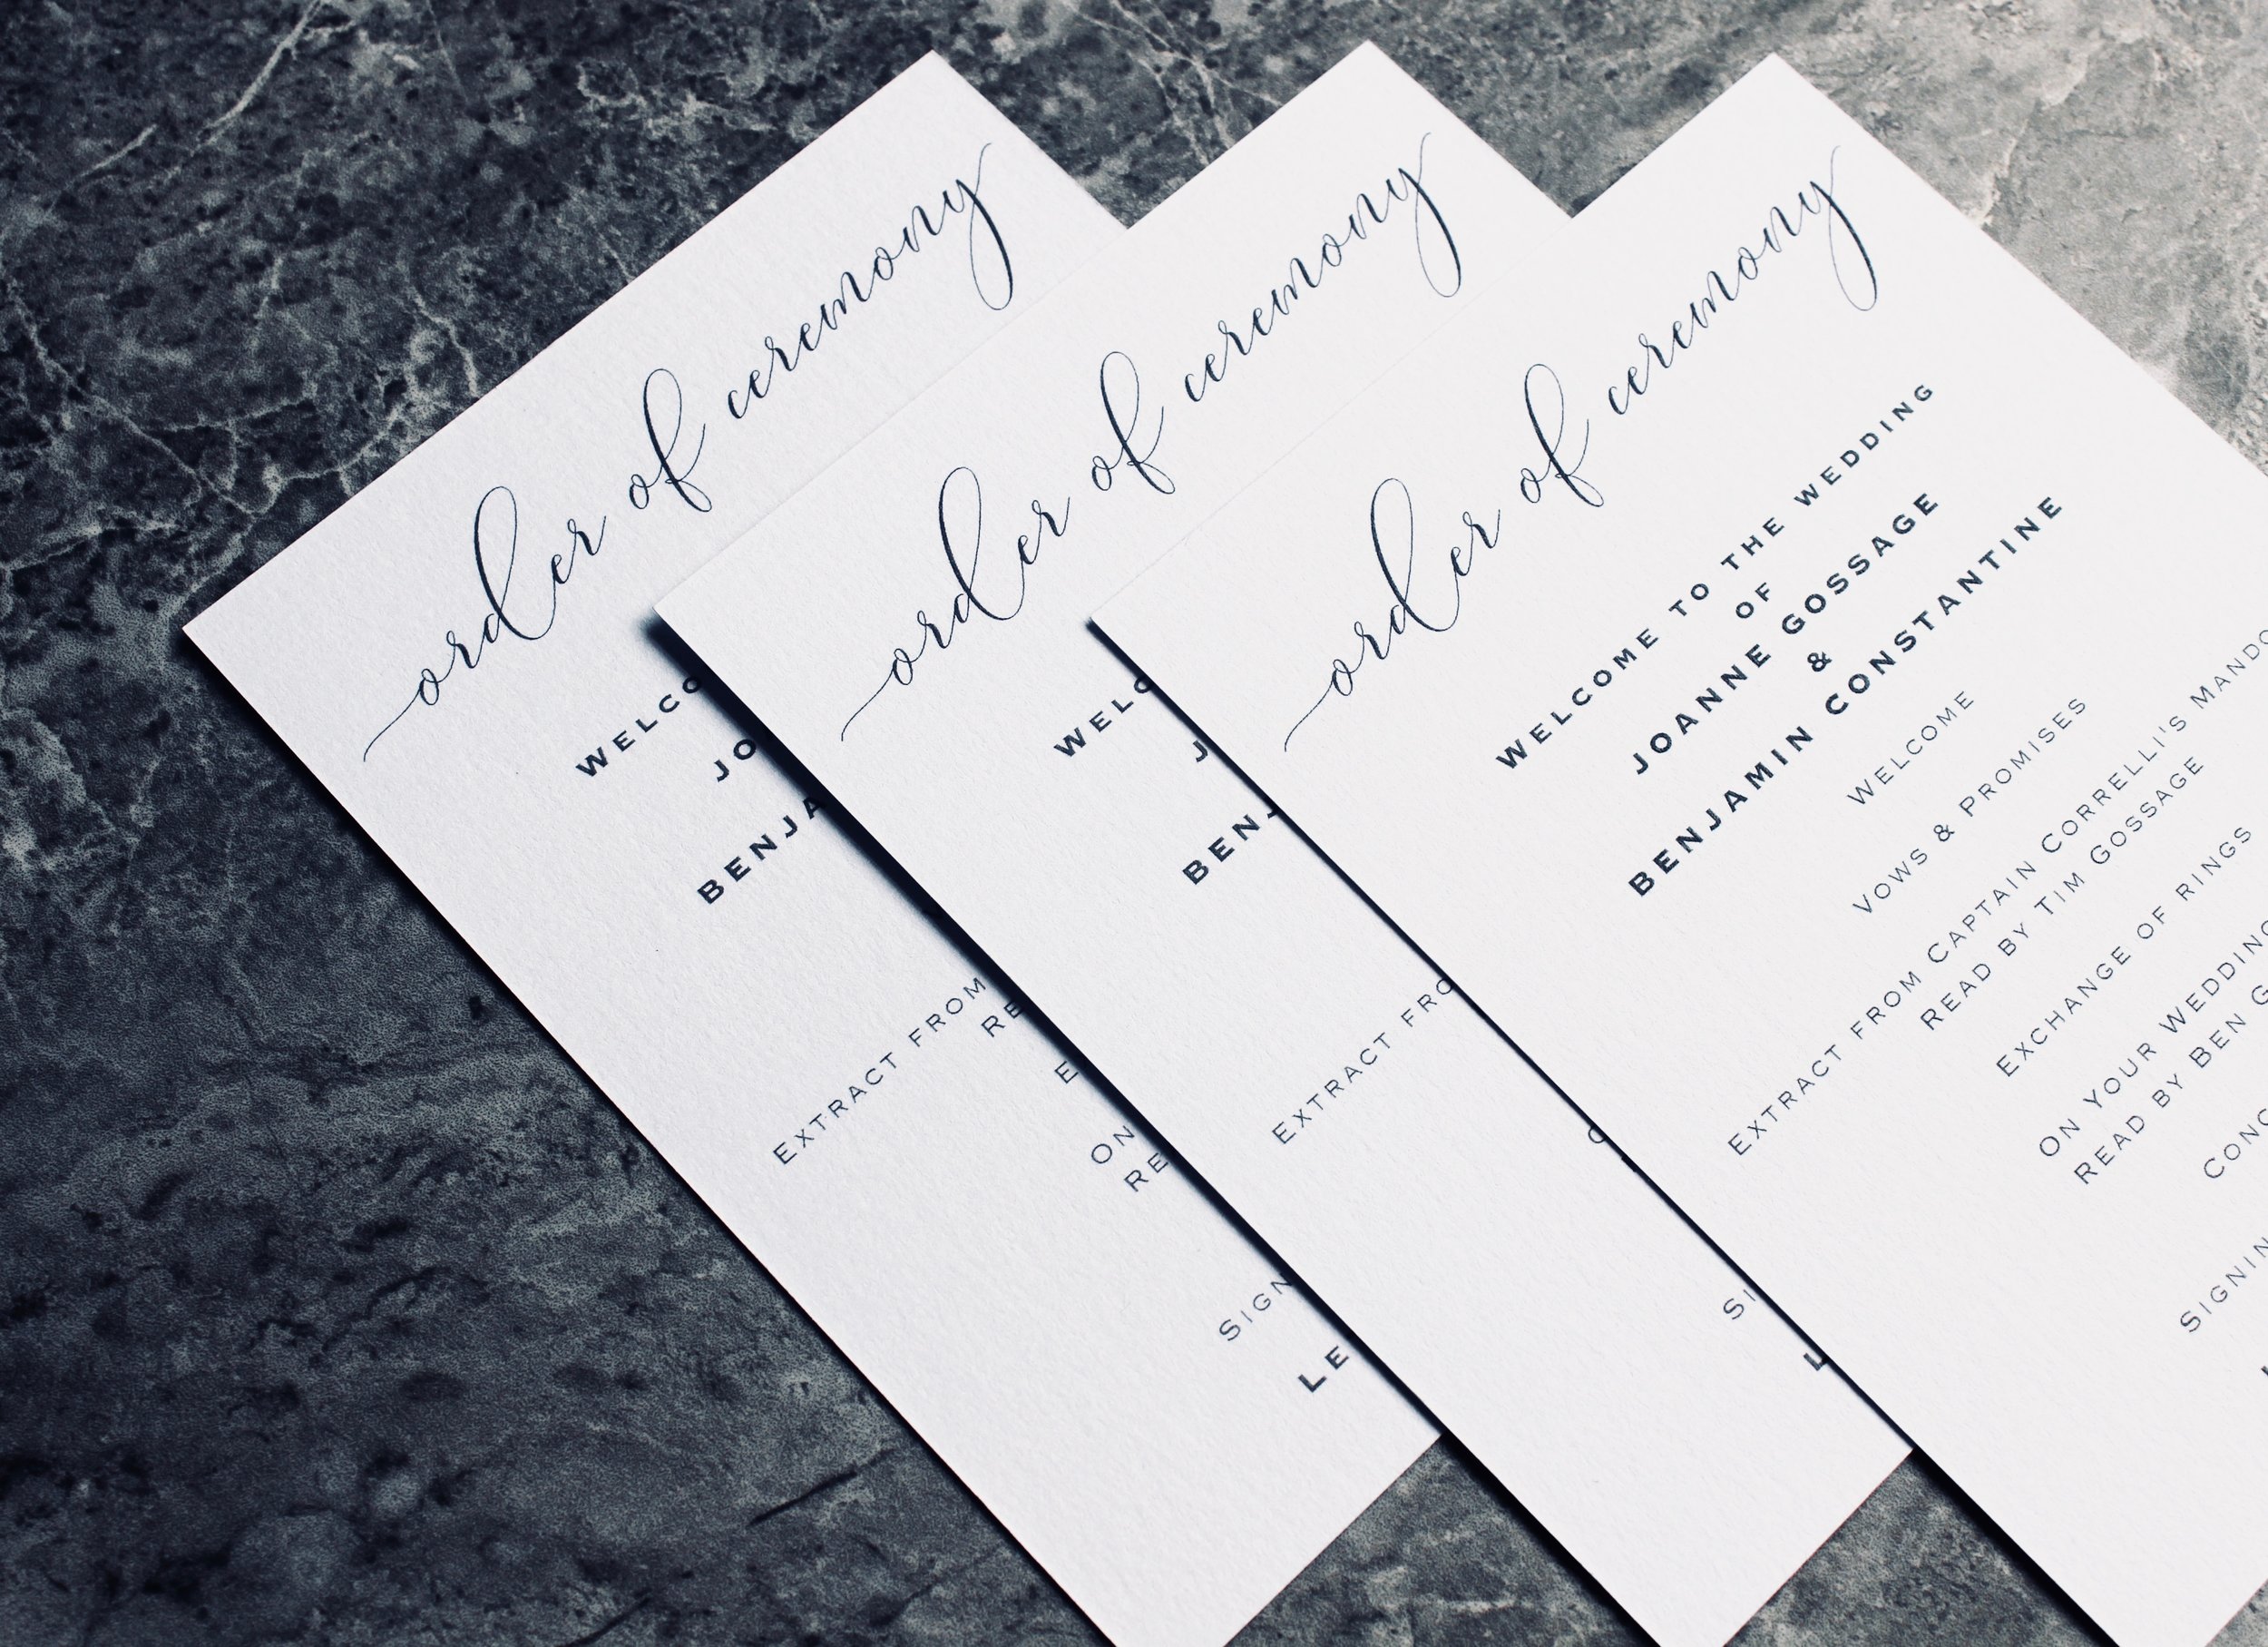 order of ceremony
WELCO
JO
BENJA
EXTRACT FROM
RE
E
ON
RE
SIGN
LE
order of ceremony
WELC
J
BENJ
EXTRACT FRO
SI
L
order of ceremony
WELCOME TO THE WEDDING
OF
JOANNE GOSSAGE
&
BENJAMIN CONSTANTINE
WELCOME
VOWS & PROMISES
EXTRACT FROM CAPTAIN CORRELLI'S MANDO
READ BY TIM GOSSAGE
EXCHANGE OF RINGS
ON YOUR WEDDING
READ BY BEN G
CONC
SIGNIN